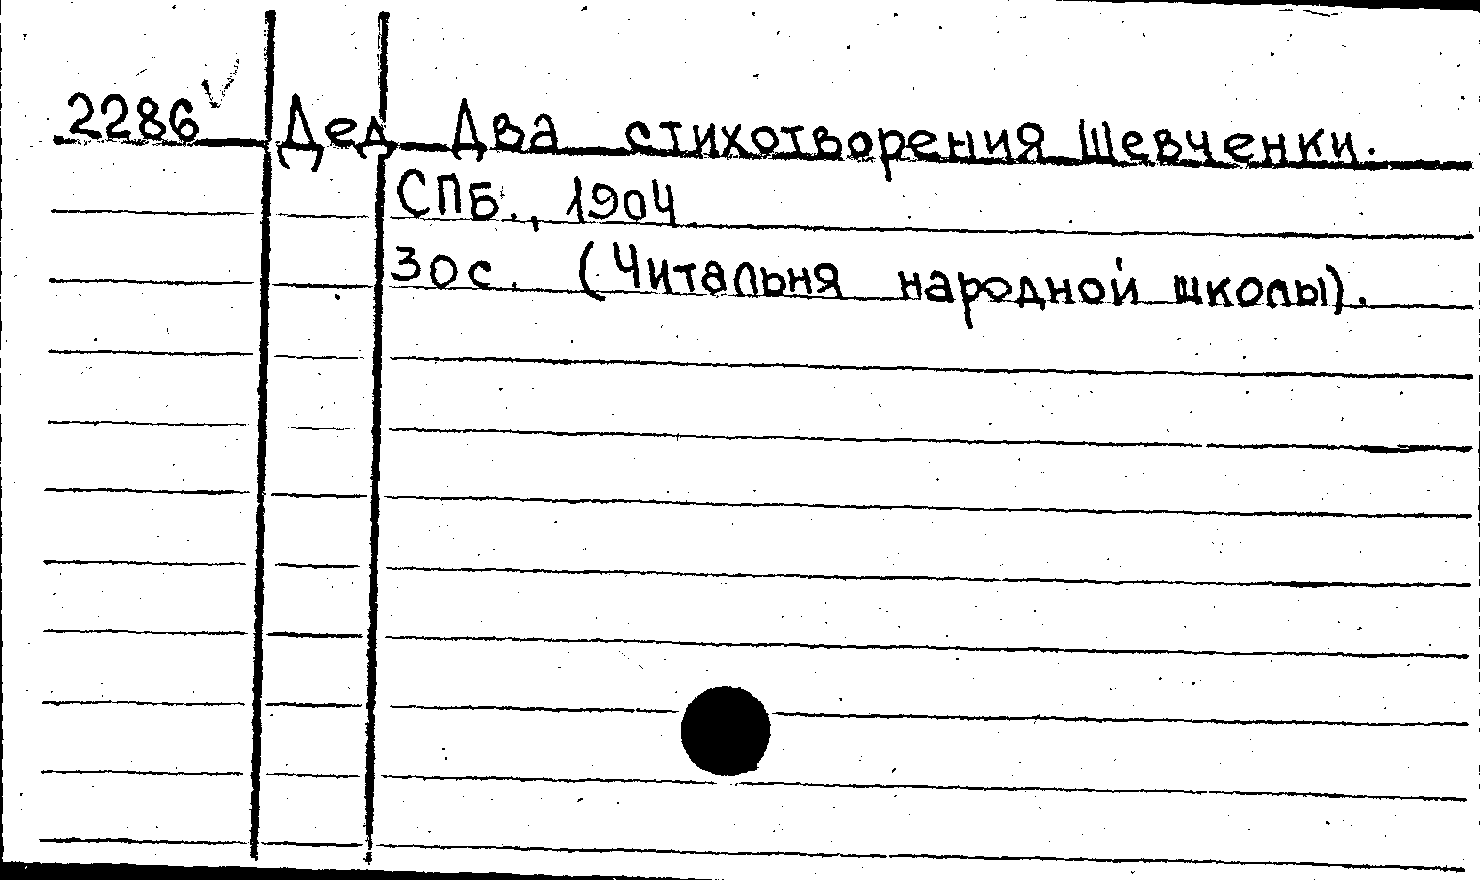 2286 Дед Два стихотворения Шевченки.
СПБ., 1904
30 с. (Читальня народной школы).